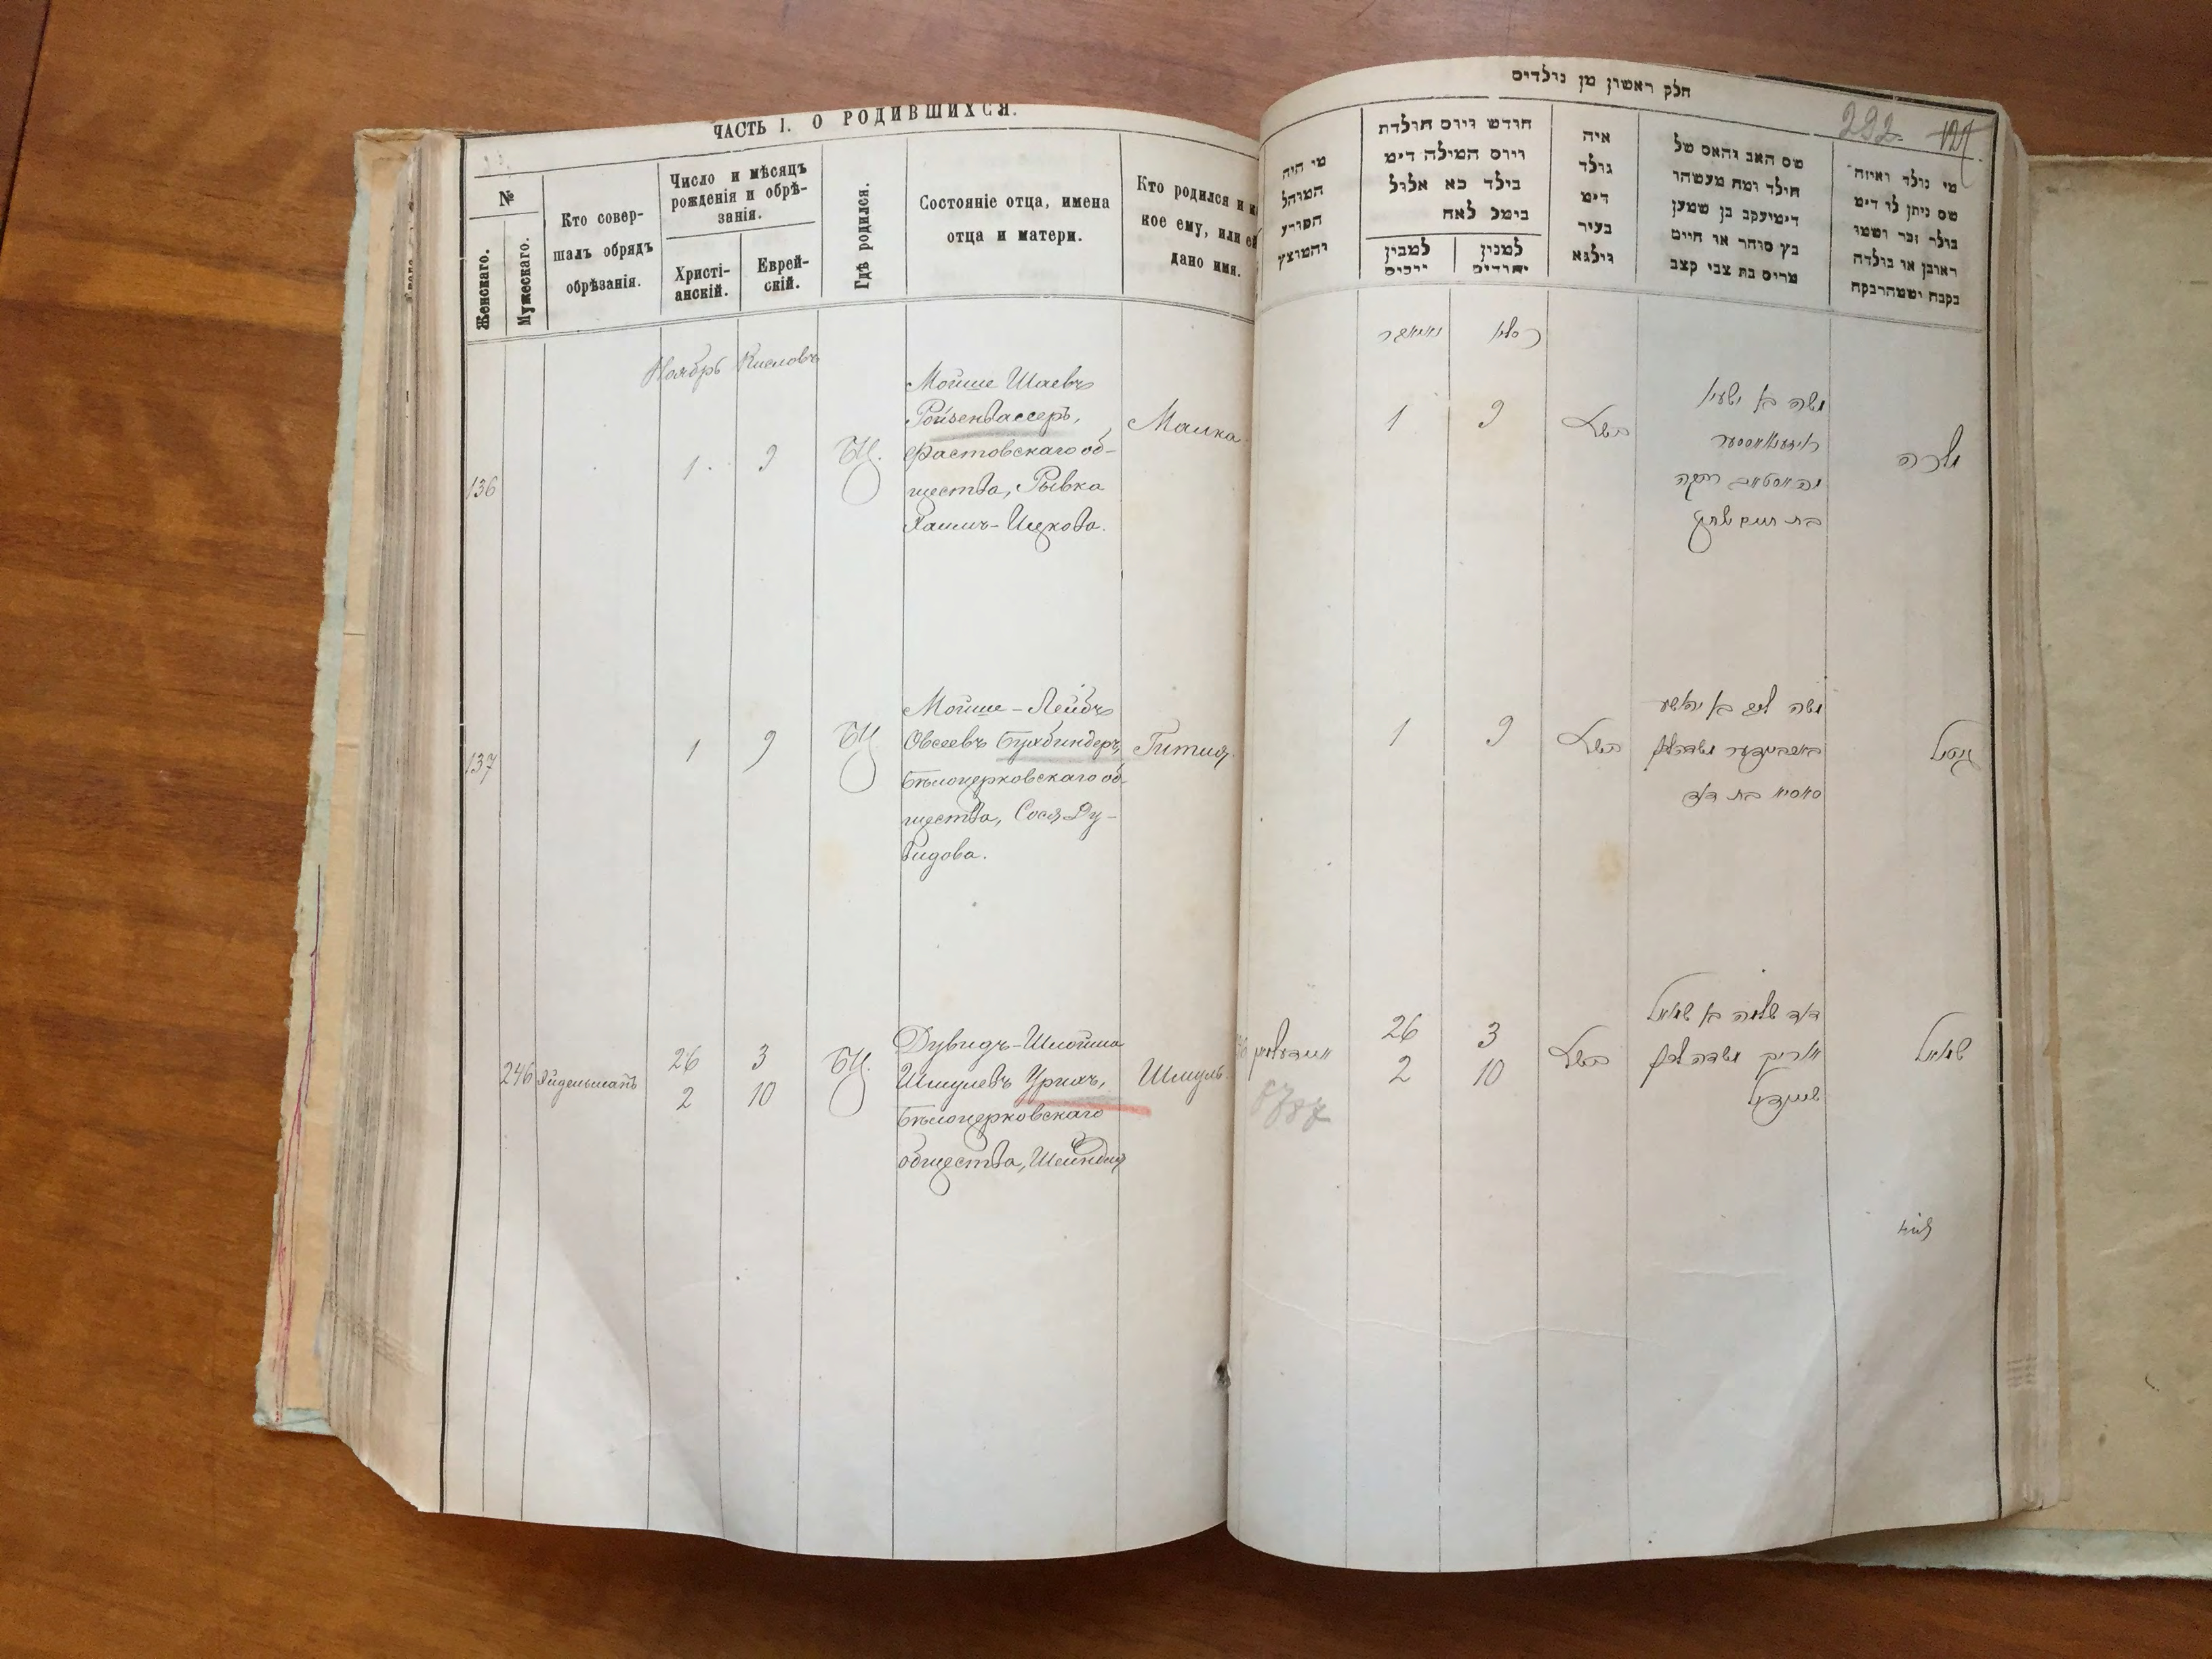 ЧАСТЬ I. О РОДИВШИХСЯ.
№
Женскаго.
Мужескаго.
Кто совер-
шалъ обрядъ
обрѣзанія.
Число и мѣсяцъ
рожденія и обрѣ-
занія.
Христі-
анскій.
Еврей-
скій.
Гдѣ родился.
Состояніе отца, имена
отца и матери.
Кто родился и ка
кое ему, или ей
дано имя.
Ноябрь Кисловъ
136
1. 9 БЦ.
Мойше Шаевъ
Ройзенвассеръ,
Фастовскаго об-
щества, Рывка
Хаимъ-Ицкова.
Малка
137
1 9 БЦ.
Мойше-Лейбъ
Овсеевъ Бухбиндеръ,
Бѣлоцерковскаго об-
щества, Сося Ду-
видова.
Гитля.
246
26 3 БЦ.
2 10
Дувидъ-Шлойма
Шмулевъ Урихъ,
Бѣлоцерковскаго
общества, Шейндля
Шмуль.
חלק ראשון מן נולדים
292 127.
מי היה
המוהל
הפורע
והמוצץ
חודש ויום הולדת
ויום המילה דימ
בילד כא אלול
בימל לאח
למבין
למנין
יהודים
איה
נולד
דימ
בעיר
וילנא
שם האב והאם של
הילד ומה מעשהו
דימיעקב בן שמען
בץ סוחר או חיים
מרים בת צבי קצב
מי נולד ואיזה
שם ניתן לו דימ
בולד זכר ושמו
ראובן או בולדה
נקבה ושמהרבקה
1 9
משה בא ישעיא
רויזענוואססער
בת חיים איציק
מלכה
1 9
משה ליב בא יהושע
סאסיא בת דוד
גיטיל
26 3
2 10
דוד שלמה בא שמואל
שיינדיל
שמואל